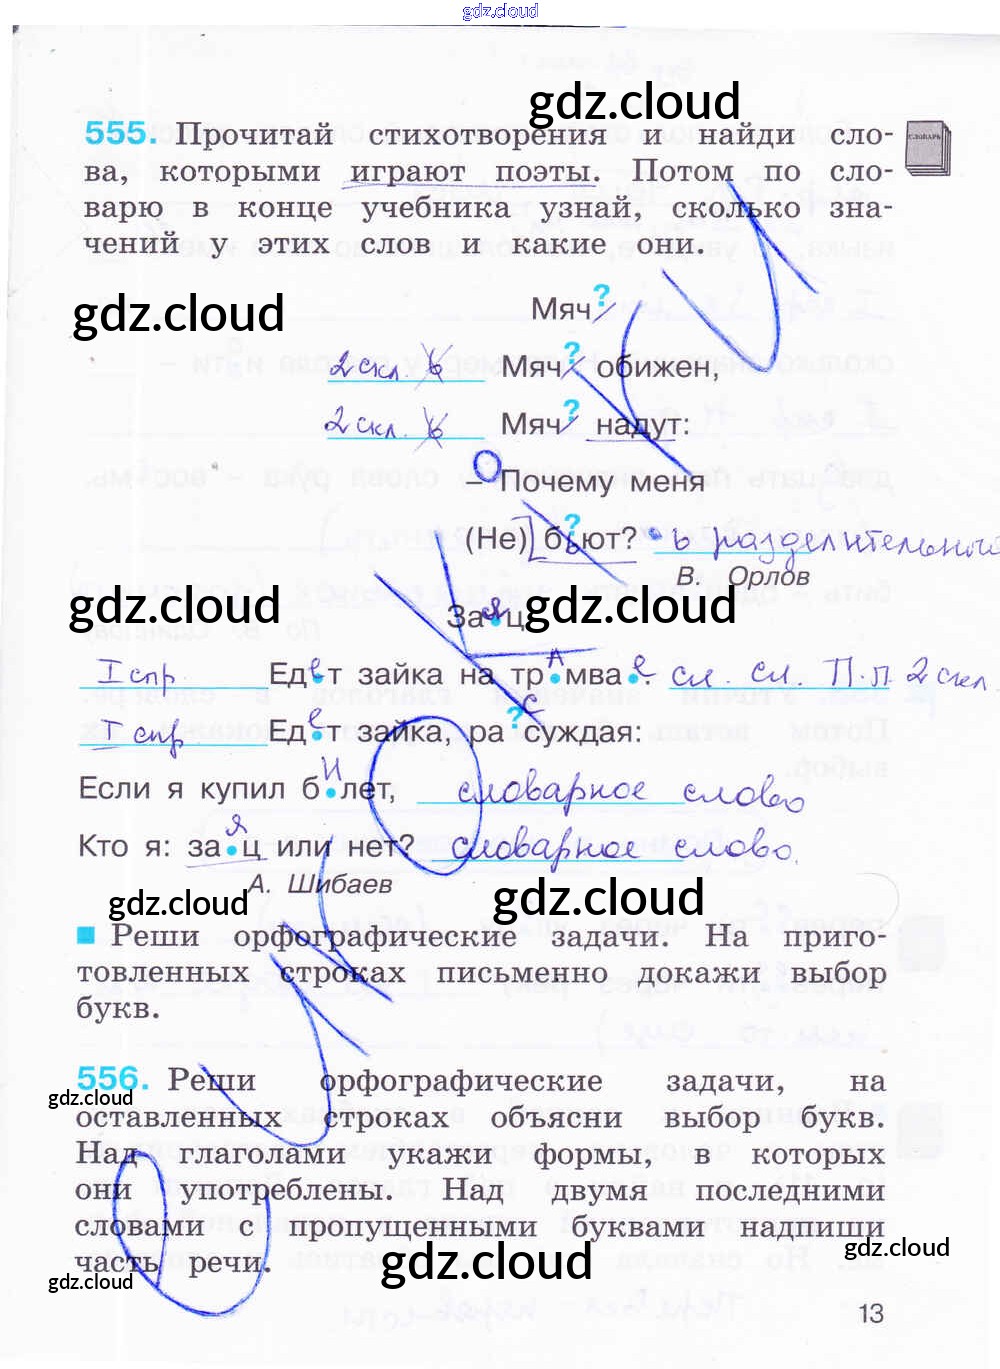 gdz.cloud
gdz.cloud
555. Прочитай стихотворения и найди сло-
ва, которыми играют поэты. Потом по сло-
варю в конце учебника узнай, сколько зна-
чений у этих слов и какие они.
СЛОВАРЬ
gdz.cloud
Мяч?
2 скл. ь Мяч? обижен,
2 скл. ь Мяч? надут:
– Почему меня
(Не) бьют? ь разделительной
В. Орлов
gdz.cloud gdz.cloud
Заяц
I спр. Едет зайка на трАмвае. сл. сл. П.п. 2 скл.
I спр Едет зайка, расСуждая:
Если я купил бИлет, словарное слово
Кто я: заяц или нет? словарное слово.
А. Шибаев
gdz.cloud gdz.cloud
Реши орфографические задачи. На приго-
товленных строках письменно докажи выбор
букв.
556. Реши орфографические задачи, на
gdz.cloud
оставленных строках объясни выбор букв.
Над глаголами укажи формы, в которых
они употреблены. Над двумя последними
словами с пропущенными буквами надпиши
часть речи.
gdz.cloud gdz.cloud gdz.cloud
13